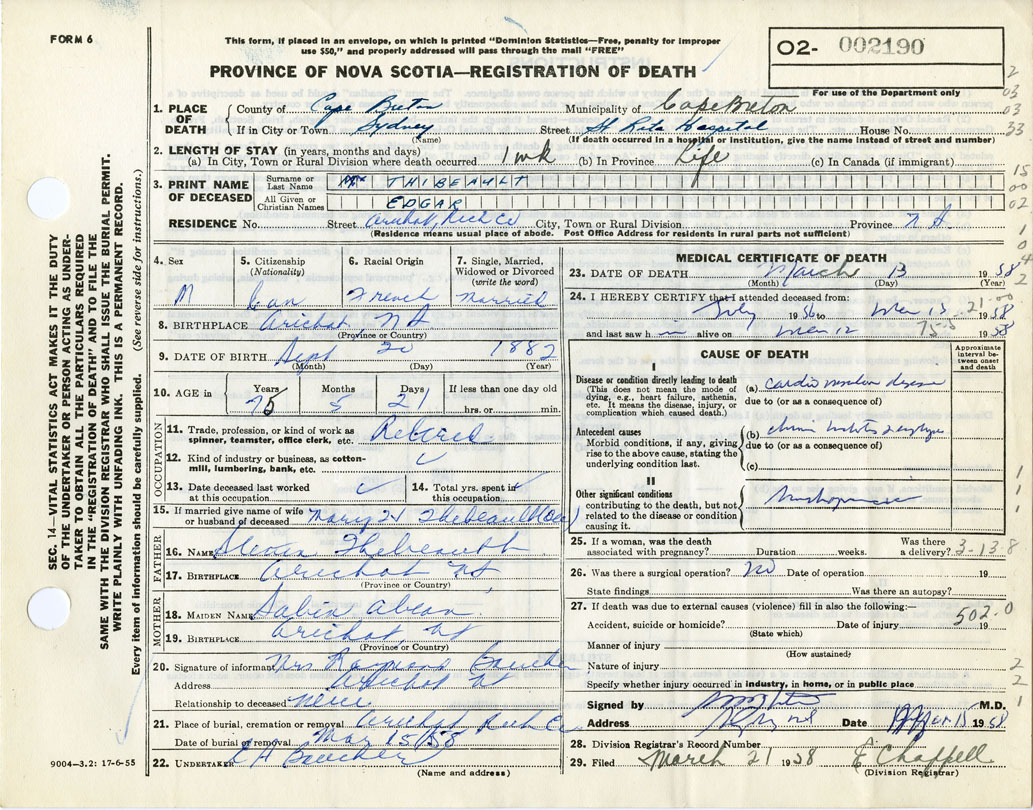 FORM 6
This form, if placed in an envelope, on which is printed "Dominion Statistics—Free, penalty for improper
use $50," and properly addressed will pass through the mail "FREE"
PROVINCE OF NOVA SCOTIA—REGISTRATION OF DEATH
02- 002190
For use of the Department only
SEC. 14—VITAL STATISTICS ACT MAKES IT THE DUTY
OF THE UNDERTAKER OR PERSON ACTING AS UNDER-
TAKER TO OBTAIN ALL THE PARTICULARS REQUIRED
IN THE "REGISTRATION OF DEATH" AND TO FILE THE
SAME WITH THE DIVISION REGISTRAR WHO SHALL ISSUE THE BURIAL PERMIT.
WRITE PLAINLY WITH UNFADING INK. THIS IS A PERMANENT RECORD.
Every item of information should be carefully supplied. (See reverse side for instructions.)
1. PLACE OF DEATH
County of Cape Breton Municipality of Cape Breton
If in City or Town Sydney Street St Rita Hospital House No.
(Name) (If death occurred in a hospital or institution, give the name instead of street and number)
2. LENGTH OF STAY (in years, months and days)
(a) In City, Town or Rural Division where death occurred 1 wk (b) In Province Life (c) In Canada (if immigrant)
3. PRINT NAME OF DECEASED
Surname or Last Name THIBEAULT
All Given or Christian Names EDGAR
RESIDENCE No. Street Arichat, Rich Co City, Town or Rural Division Province N S
(Residence means usual place of abode. Post Office Address for residents in rural parts not sufficient)
4. Sex M
5. Citizenship (Nationality) Can
6. Racial Origin French
7. Single, Married, Widowed or Divorced (write the word) Married
8. BIRTHPLACE Arichat, NS
(Province or Country)
9. DATE OF BIRTH Sept 20 1882
(Month) (Day) (Year)
10. AGE in Years 75 Months 5 Days 21 If less than one day old hrs. or min.
OCCUPATION
11. Trade, profession or kind of work as spinner, teamster, office clerk, etc. Retired
12. Kind of industry or business, as cotton-mill, lumbering, bank, etc.
13. Date deceased last worked at this occupation
14. Total yrs. spent in this occupation
15. If married give name of wife or husband of deceased Mary Thibeault
FATHER
16. NAME Thibeault
17. BIRTHPLACE Arichat NS
(Province or Country)
MOTHER
18. MAIDEN NAME Sabin
19. BIRTHPLACE Arichat, NS
(Province or Country)
20. Signature of informant Mrs Raymond Boucher
Address Arichat NS
Relationship to deceased Niece
21. Place of burial, cremation or removal Arichat Rich Co
Date of burial or removal Mar 15/58
22. UNDERTAKER Boucher
(Name and address)
9004—3.2: 17-6-55
MEDICAL CERTIFICATE OF DEATH
23. DATE OF DEATH March 13 1958
(Month) (Day) (Year)
24. I HEREBY CERTIFY that I attended deceased from:
July 1956 to Mar 13 1958
and last saw h im alive on Mar 12 1958
CAUSE OF DEATH
Approximate interval between onset and death
I
Disease or condition directly leading to death
(This does not mean the mode of dying, e.g., heart failure, asthenia, etc. It means the disease, injury, or complication which caused death.)
(a)
due to (or as a consequence of)
Antecedent causes
Morbid conditions, if any, giving rise to the above cause, stating the underlying condition last.
(b)
due to (or as a consequence of)
(c)
II
Other significant conditions
contributing to the death, but not related to the disease or condition causing it.
25. If a woman, was the death associated with pregnancy? Duration weeks. Was there a delivery? 3-13-8
26. Was there a surgical operation? No Date of operation 19
State findings Was there an autopsy?
27. If death was due to external causes (violence) fill in also the following:—
502.0
Accident, suicide or homicide? Date of injury 19
(State which)
Manner of injury
(How sustained)
Nature of injury
Specify whether injury occurred in industry, in home, or in public place
Signed by M.D.
Address Date Mar 13 1958
28. Division Registrar's Record Number
29. Filed March 21 1958 E Chappell
(Division Registrar)